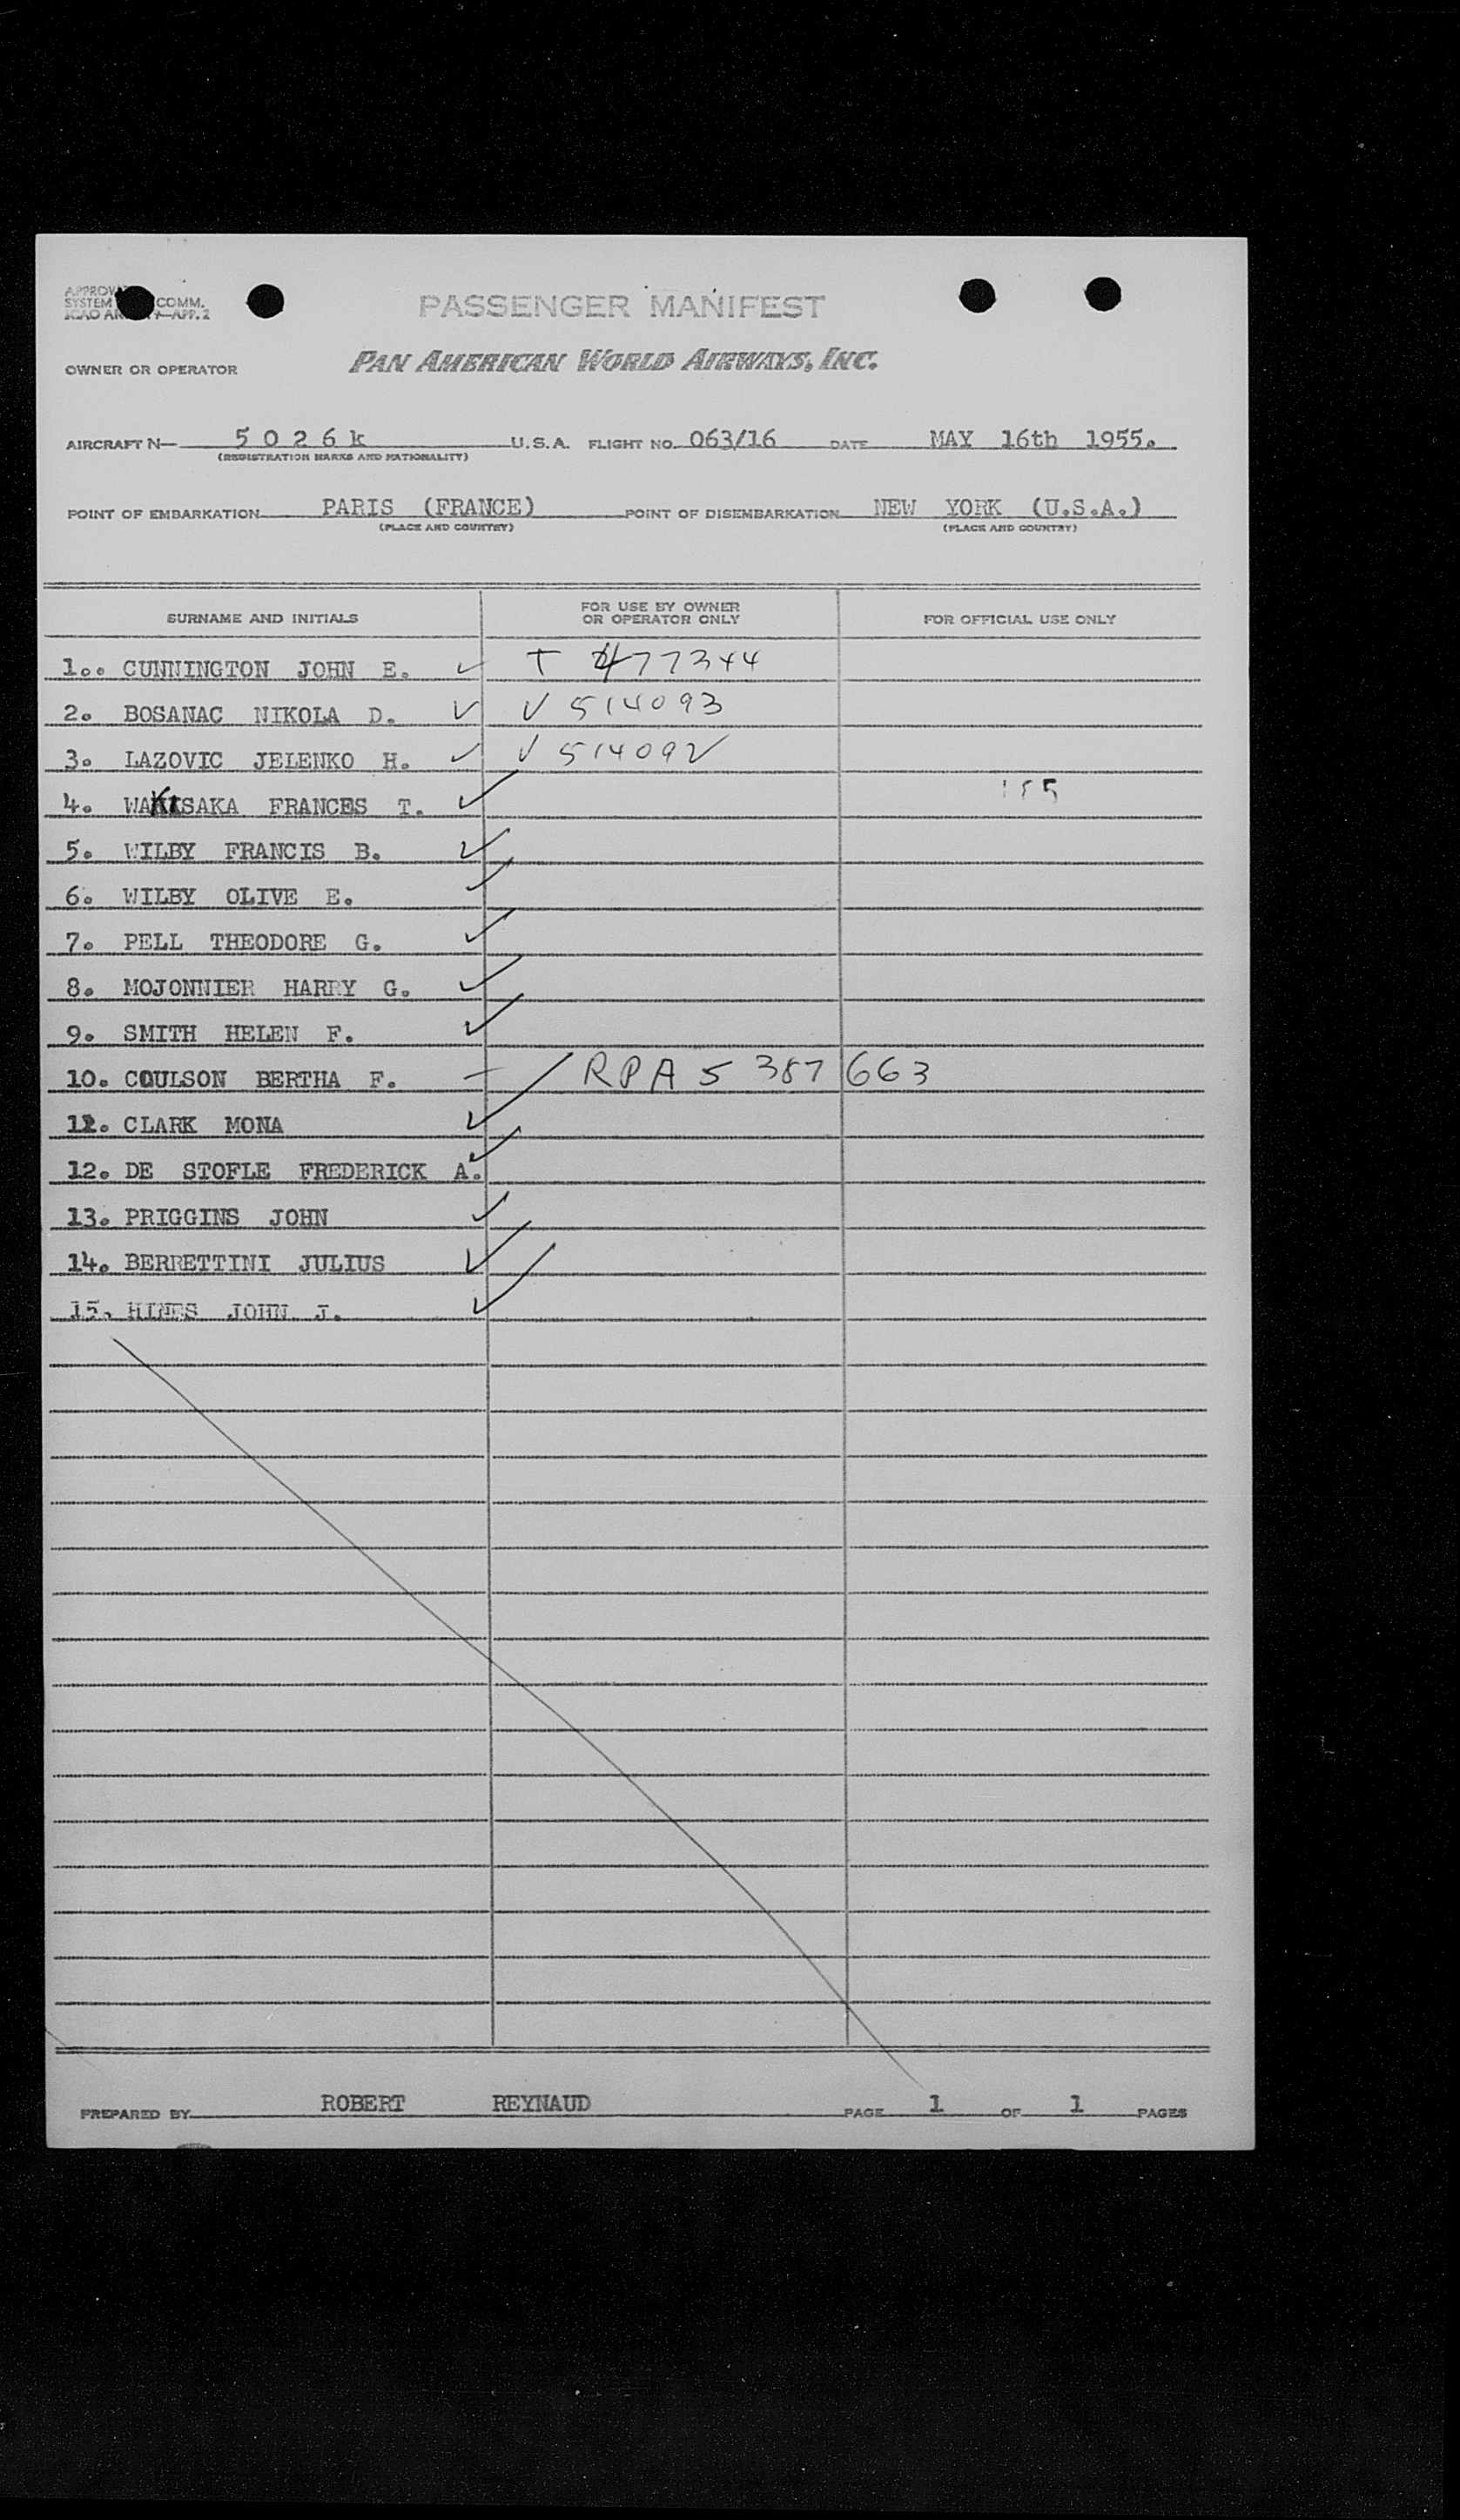 SYSTEM COMM.
PASSENGER MANIFEST
OWNER OR OPERATOR PAN AMERICAN WORLD AIRWAYS, INC.
AIRCRAFT N— 5 0 2 6 k U.S.A. FLIGHT NO. 063/16 DATE MAY 16th 1955.
(REGISTRATION MARKS AND NATIONALITY)
POINT OF EMBARKATION PARIS (FRANCE) POINT OF DISEMBARKATION NEW YORK (U.S.A.)
(PLACE AND COUNTRY) (PLACE AND COUNTRY)
SURNAME AND INITIALS FOR USE BY OWNER OR OPERATOR ONLY FOR OFFICIAL USE ONLY
1.. CUNNINGTON JOHN E. ✓ T 477344
2. BOSANAC NIKOLA D. ✓ V 514093
3. LAZOVIC JELENKO H. ✓ V 514092
4. WAKISAKA FRANCES T. ✓
5. WILBY FRANCIS B. ✓
6. WILBY OLIVE E. ✓
7. PELL THEODORE G. ✓
8. MOJONNIER HARRY G. ✓
9. SMITH HELEN F. ✓
10. COULSON BERTHA F. — RPA 5 387 663
11. CLARK MONA ✓
12. DE STOFLE FREDERICK A. ✓
13. PRIGGINS JOHN ✓
14. BERRETTINI JULIUS ✓
15. HINES JOHN J. ✓
PREPARED BY ROBERT REYNAUD PAGE 1 OF 1 PAGES